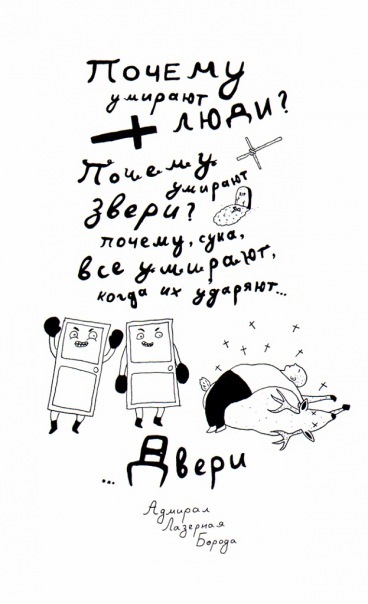 Почему
умирают
люди?
Почему
умирают
звери?
почему, сука,
все умирают,
когда их ударяют...
...Двери
Адмирал
Лазерная
Борода